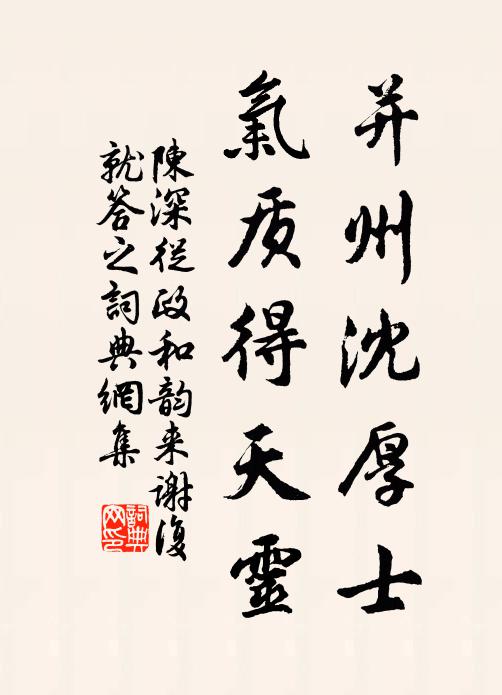 并州沈厚士
氣质得天靈
陳深從政和韵来謝復
就答之詞典網集
詞典網印